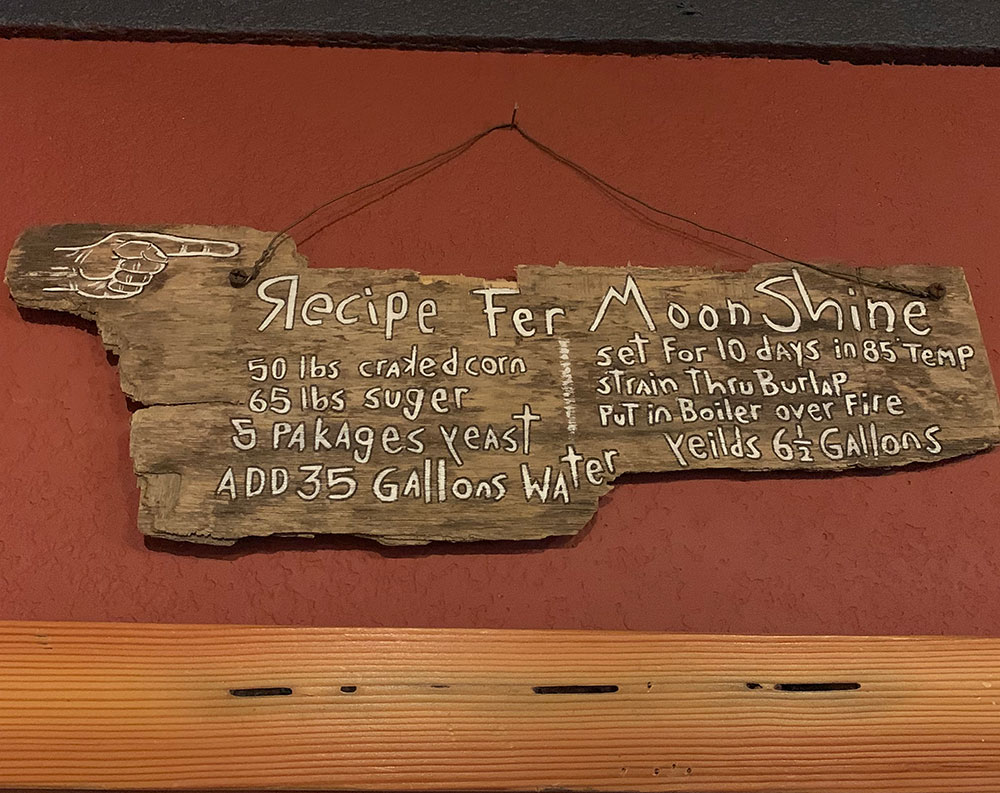 Recipe Fer MoonShine
50 lbs craked corn
65 lbs suger
5 PAKAGES yeast
ADD 35 Gallons Water
set For 10 dAys in 85° Temp
strain Thru BurlAp
PuT in Boiler over Fire
Yeilds 6½ Gallons